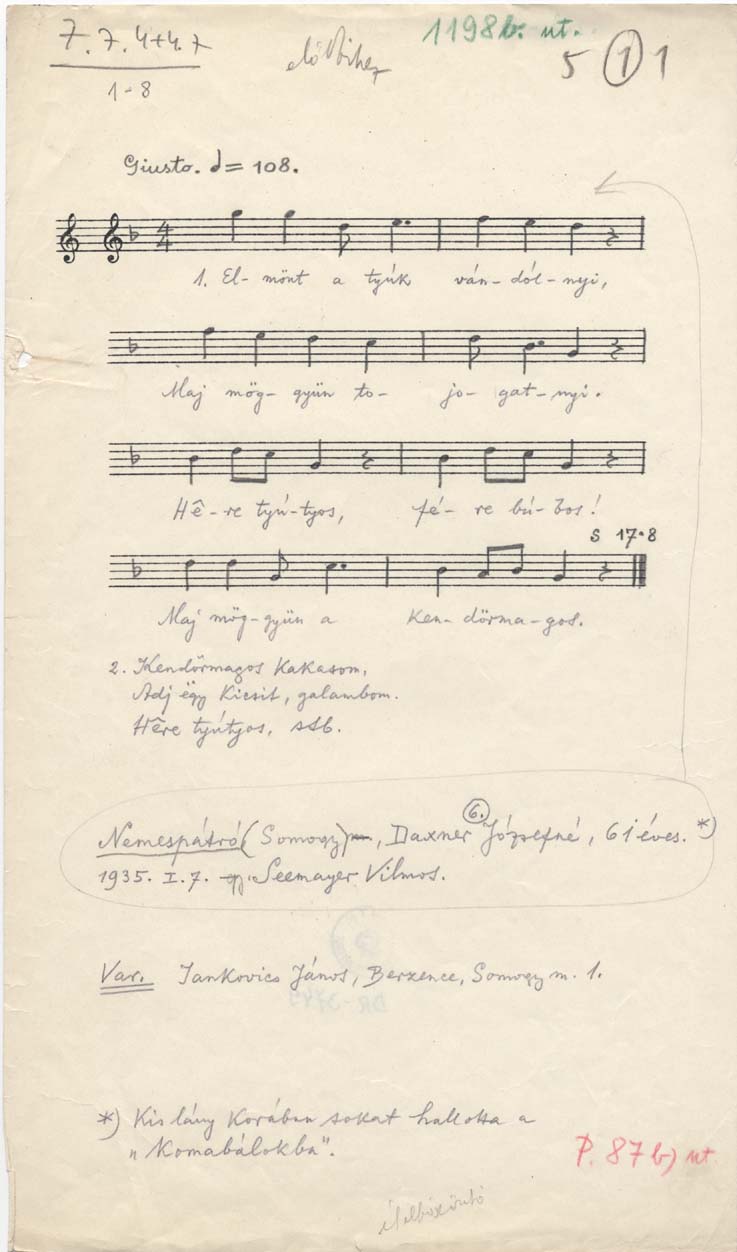 7. 7. 4+4. 7
1-8
1198b. nt.
5 1 1
Giusto. = 108.
1. El- mönt a tyúk ván- dól- nyi,
Maj mög- gyün to- jo- gat- nyi.
Hê- re tyú-tyos, fé- re bú- bos!
S 17·8
Maj mög-gyün a Ken- dörma- gos.
2. Kendörmagos kakasom,
Adj ëgy kicsit, galambom.
Hêre tyútyos, stb.
6.
Nemespátró (Somogy), Daxner Józsefné, 61 éves. *)
1935. I. 7. Seemayer Vilmos.
Var. Jankovics János, Berzence, Somogy m. 1.
*) Kis lány korában sokat hallotta a
"Komabálokba".
P. 87b) nt.